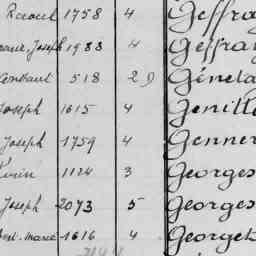 Raoul 1758 4 Geffra
Joseph 1988 4 Geffray
518 29 Géneta
Joseph 1615 4 Genill
Joseph 1759 4 Genner
1124 3 Georges
Joseph 2073 5 Georges
Marie 1616 4 Georget